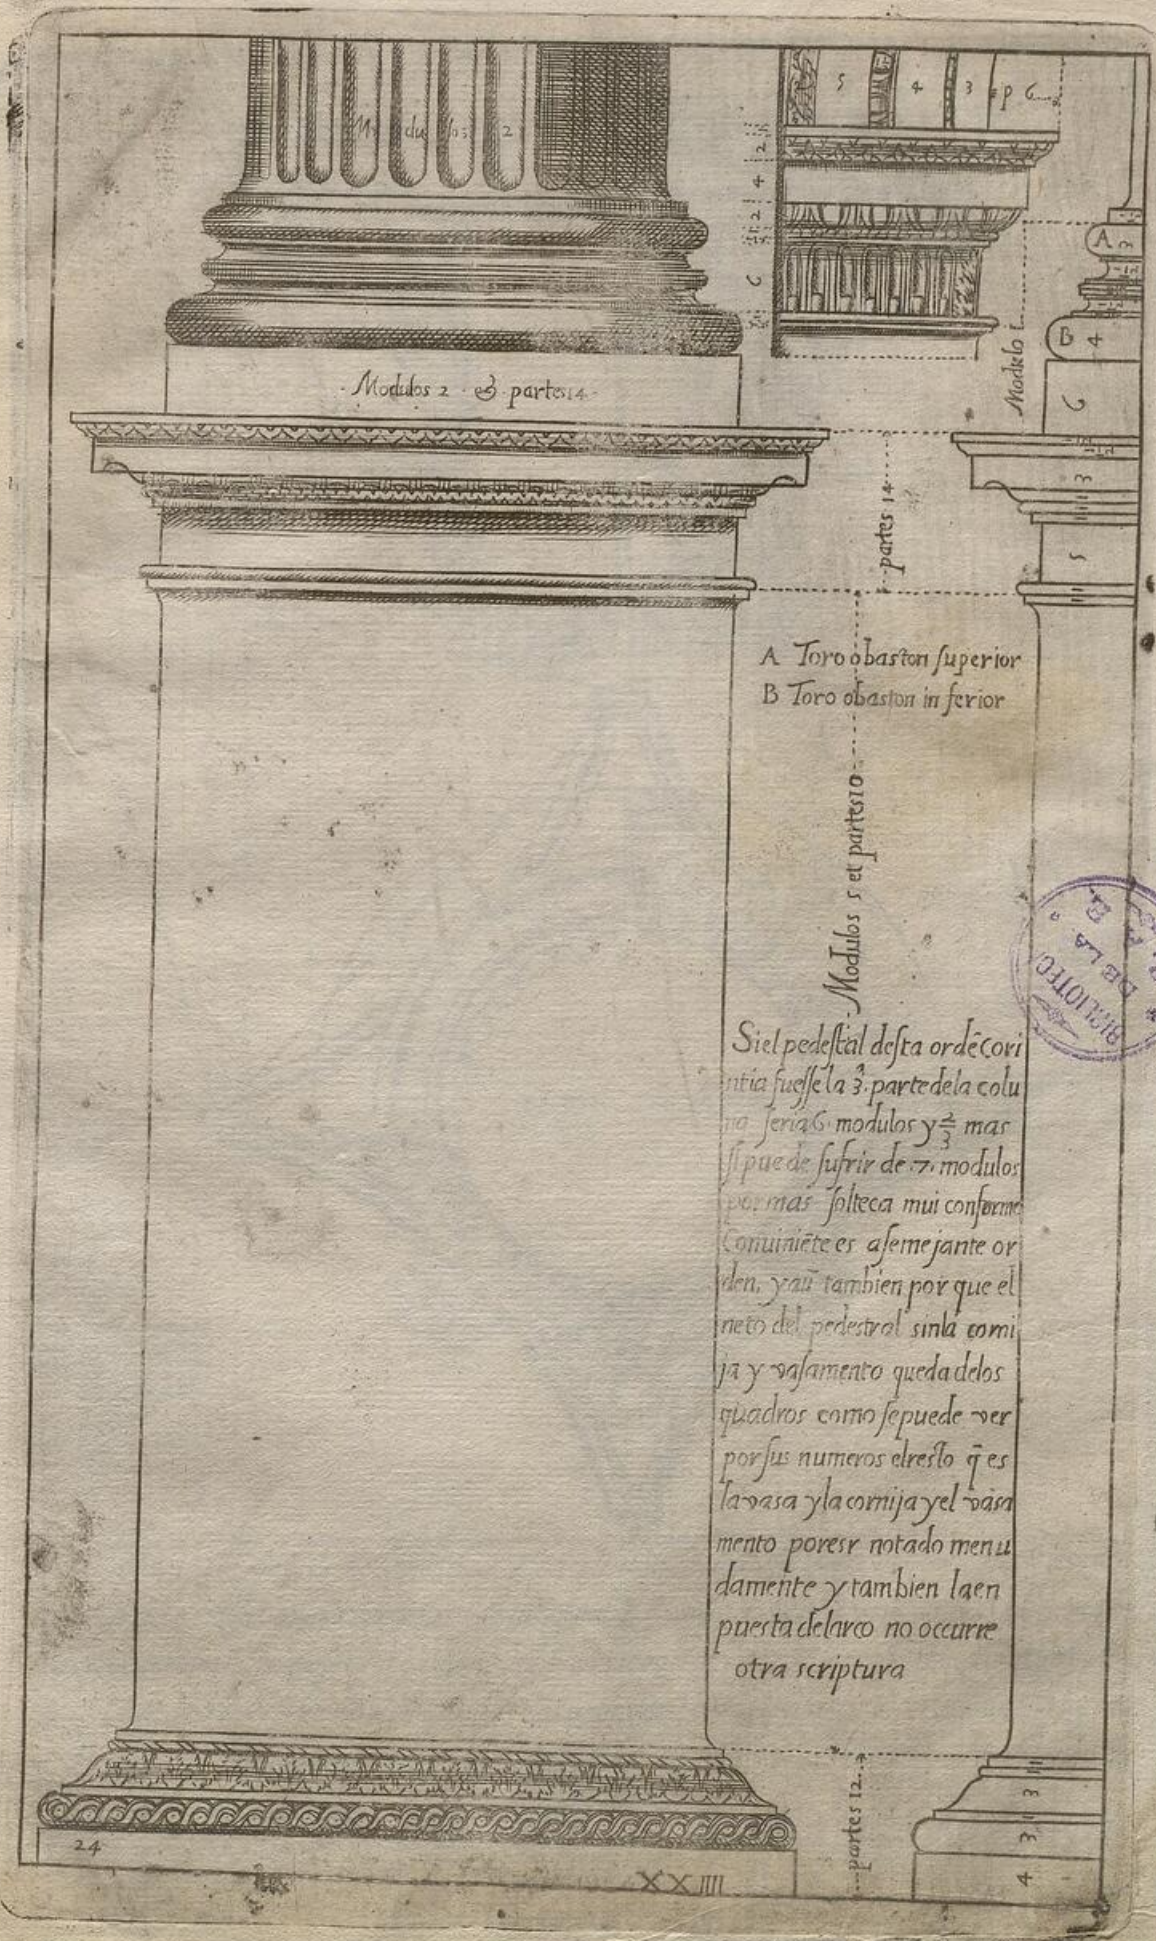 Modulos 2
5 4 3 p 6
2
4
2
6
A 3
B 4
6
Modulo 1
Modulos 2 & partes 14
3
5
partes 14
A Toro o baston superior
B Toro o baston in ferior
Modulos 5 et partes 10
BIBLIOTECA
DE LA
Si el pedestal desta ordē cori
ntia fuesse la 3. parte dela colu
na seria 6 modulos y 2/3 mas
si puede sufrir de .7. modulos
por mas solteca mui conforme
Conuiniēte es a semejante or
den, y aū tambien por que el
neto del pedestral sin la corni
ja y vasamento queda de los
quadros como se puede ver
por sus numeros el resto q̄ es
la vasa y la cornija y el vasa
mento por esr notado menu
damente y tambien la en
puesta del arco no occurre
otra scriptura
partes 12
3
3
4
24
XXIIII